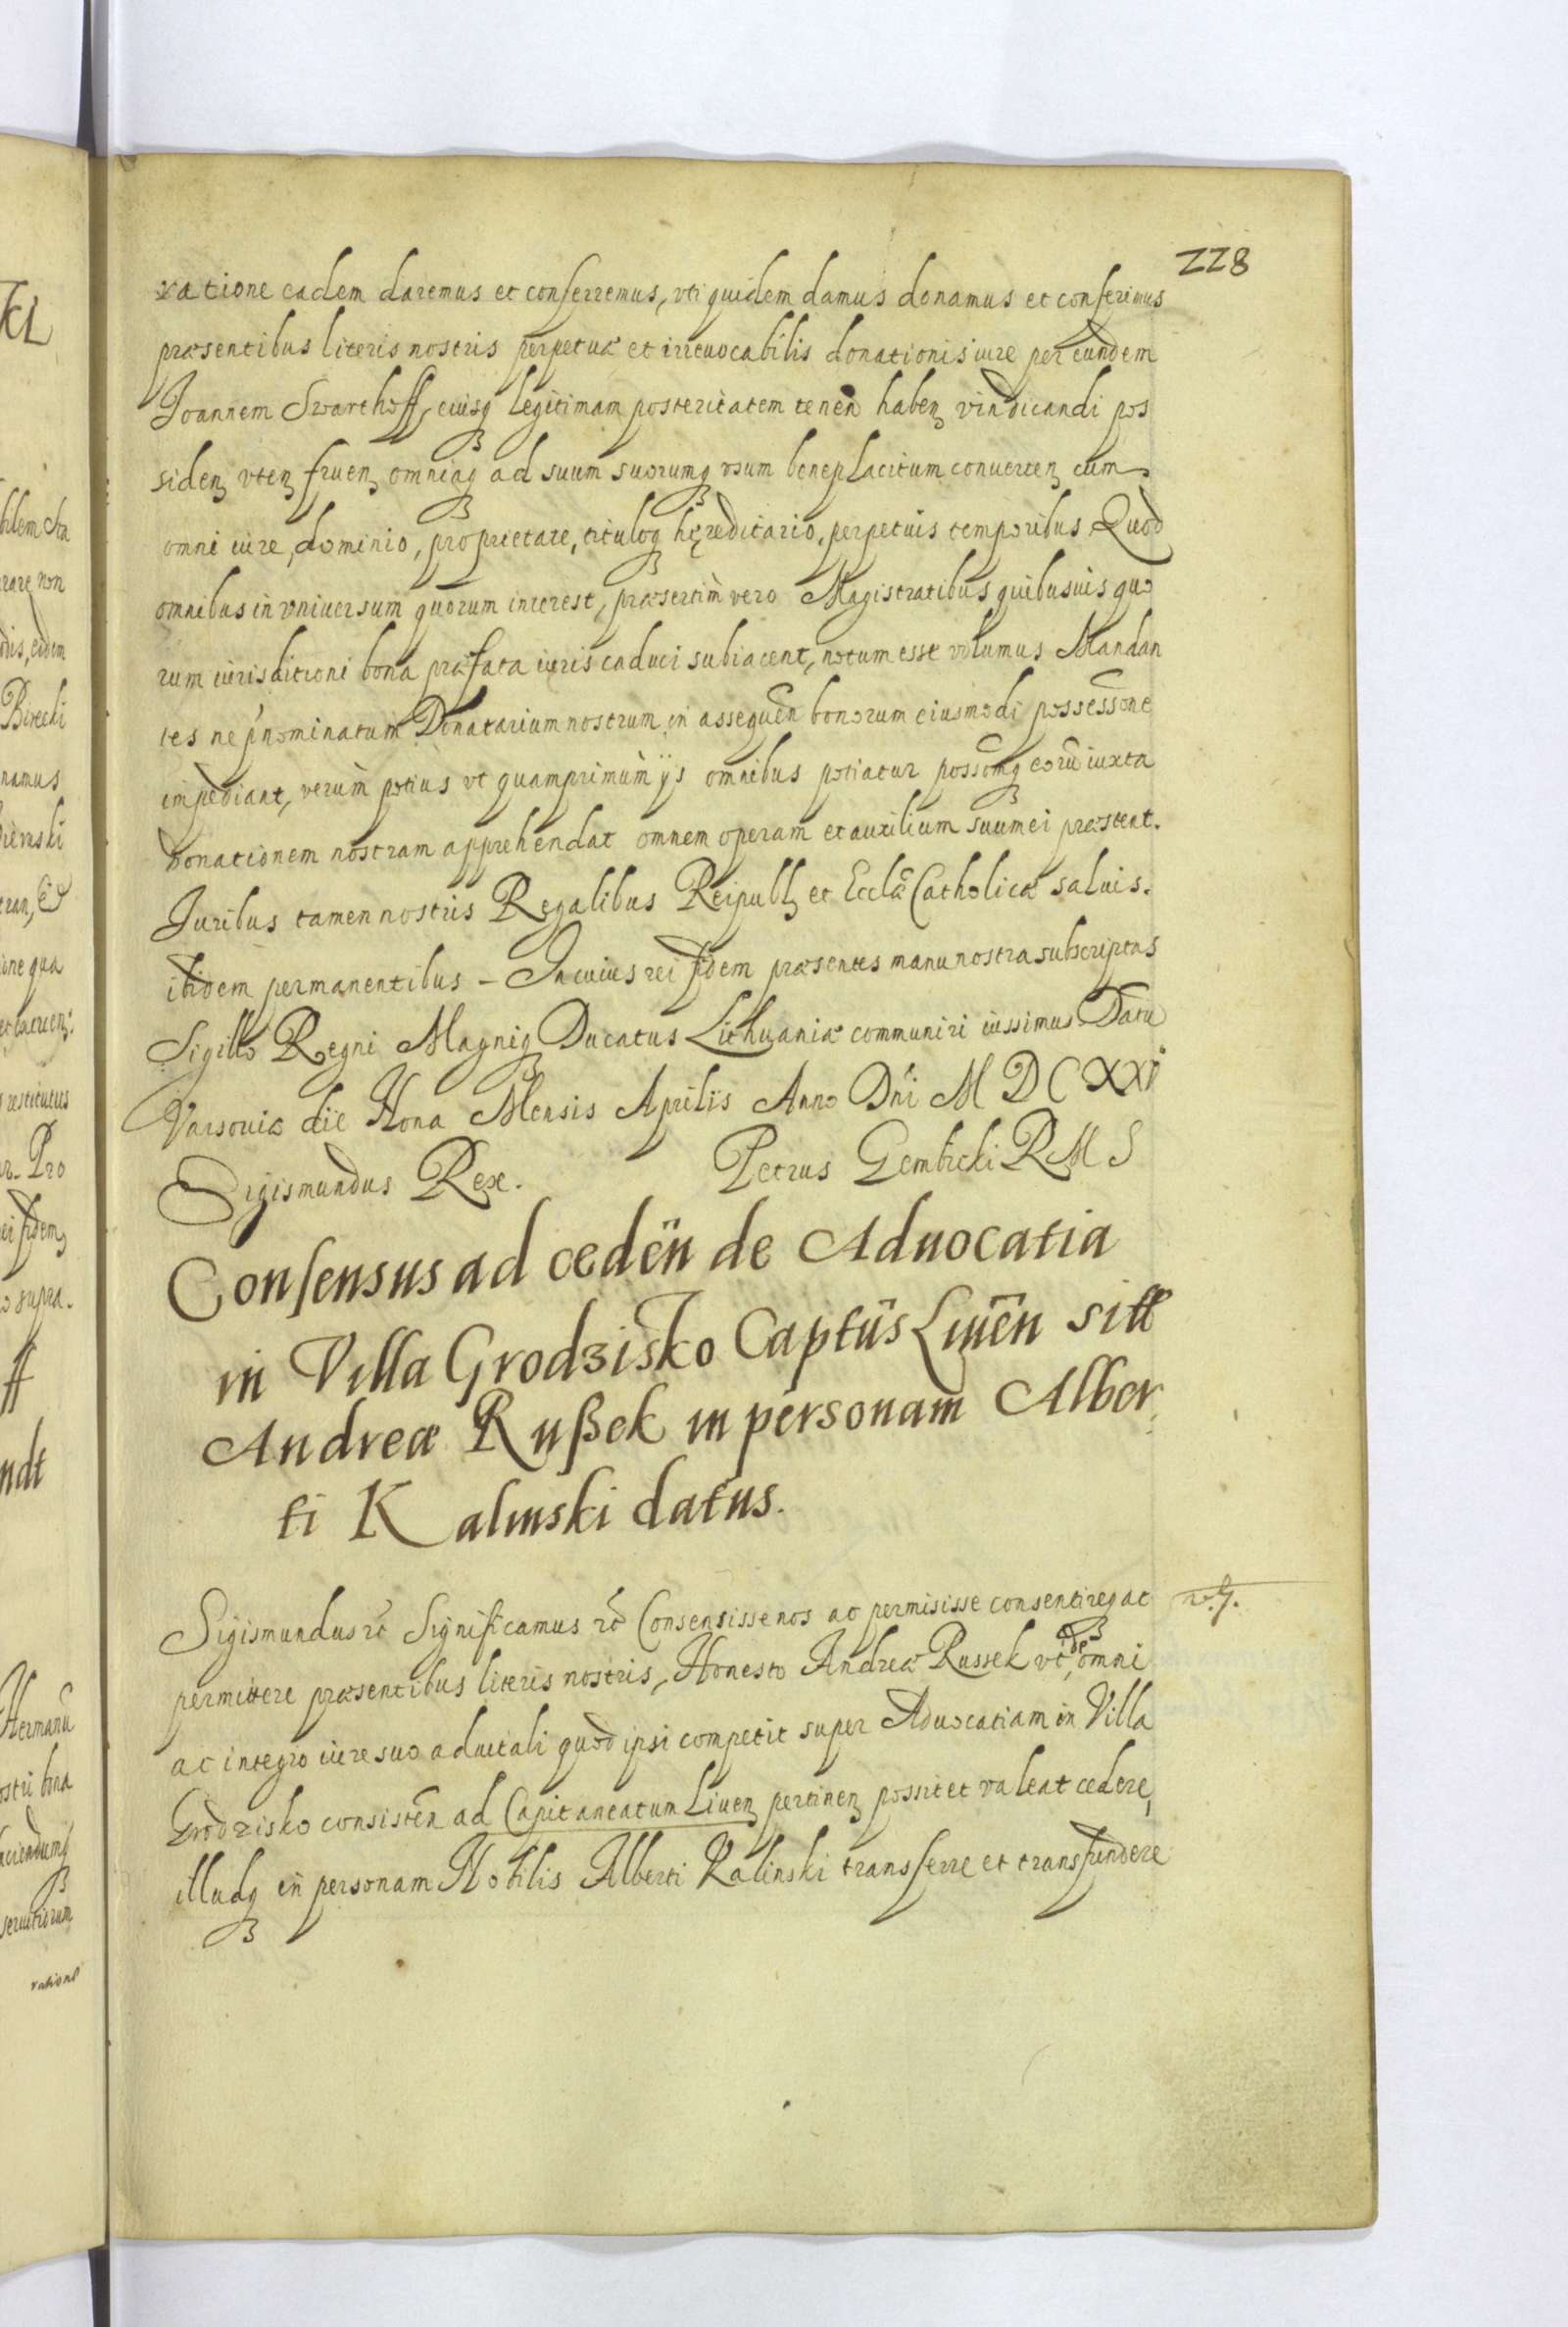 228
ratione eadem daremus et conferremus, vti quidem damus donamus et conferimus
præsentibus literis nostris perpetuæ et irreuocabilis donationis iure per eundem
Joannem Swarthoff, eiusq legitimam posteritatem tenen̄ haben vindicandi pos
siden vten fruen omniaq ad suum suorumq vsum beneplacitum conuerten cum
omni iure, dominio, proprietate, tituloq hęreditario, perpetuis temporibus Quod
omnibus in vniuersum quorum interest, præsertim vero Magistratibus quibusuis quo
rum iurisditioni bona præfata iuris caduci subiacent, notum esse volumus Mandan
tes ne p̄nominatum Donatarium nostrum in assequen̄ bonorum eiusmodi possessione
impediant, verùm potius vt quamprimùm ijs omnibus potiatur possōmq eorū iuxta
donationem nostram apprehendat omnem operam et auxilium suum ei præstent.
Juribus tamen nostris Regalibus Reipubl et Ecclæ Catholicæ saluis.
ibidem permanentibus – In cuius rei fidem præsentes manu nostra subscriptas
Sigillo Regni Magniq Ducatus Lithuaniæ communiri iussimus Datū
Varsouiæ die Nona Mensis Aprilis Anno Dn̄i M D C XXI
Sigismundus Rex. Petrus Gembicki R M S
Consensus ad ceden̄ de Aduocatia
in Villa Grodzisko Captūs Liuen̄ sitt
Andreæ Rußek in personam Alber
ti Kalinski datus.
Sigismundus rc̄ Significamus rc̄ Consensisse nos ac permisisse consentireq ac
permittere præsentibus literis nostris, Honesto Andreæ Russek vt de omni
ac integro iure suo aduitali quod ipsi competit super Aduocatiam in Villa
Grodzisko consisten̄ ad Capitaneatum Liuen pertinen possit et valeat cedere,
illudq in personam Nobilis Alberti Kalinski transferre et transfundere